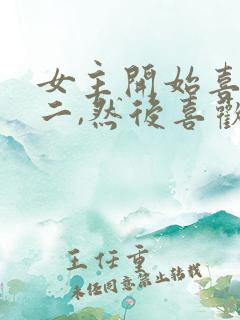 女主開始喜
二,然後喜歡
王任重
未经同意禁止转载